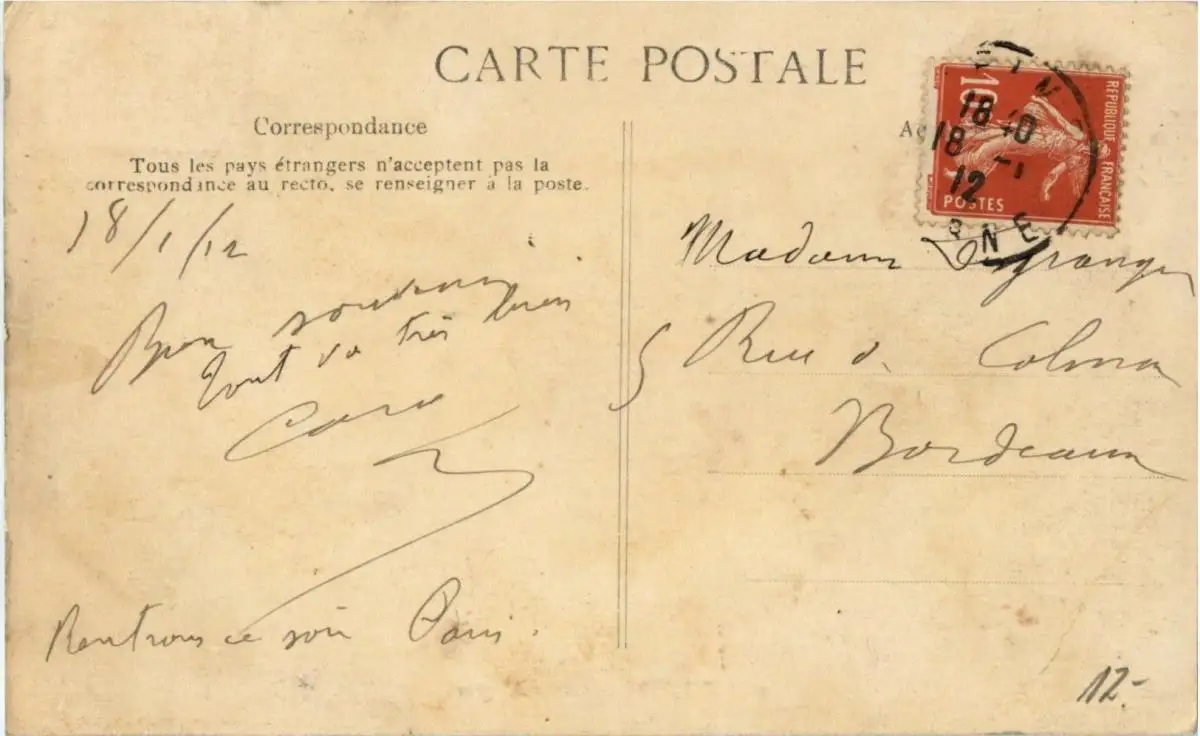 CARTE POSTALE
Correspondance
Tous les pays étrangers n'acceptent pas la
correspondance au recto, se renseigner à la poste.
18/1/12
Bon souvenir
Tout va très bien
Rentrons ce soir Paris.
10
REPUBLIQUE FRANÇAISE
POSTES
18 40
18 - 1
12
NE
Madame
5 Rue de Colmar
Bordeaux
12-